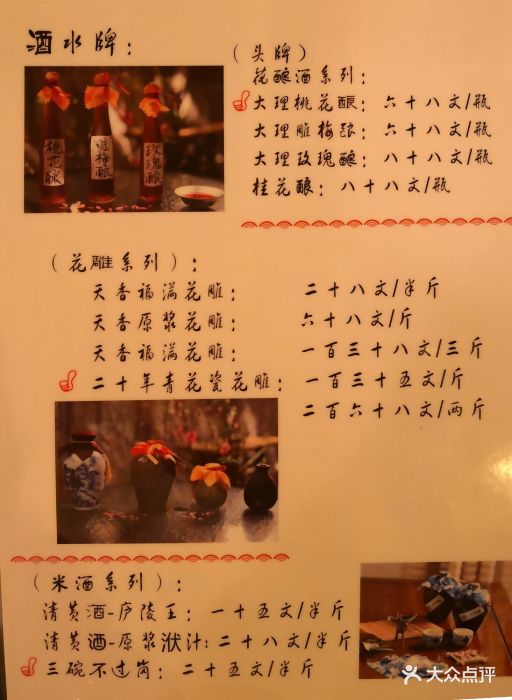 酒水牌：
（头牌）
花酿酒系列：
大理桃花酿：六十八文/瓶
大理雕梅酿：六十八文/瓶
大理玫瑰酿：八十八文/瓶
桂花酿：八十八文/瓶
桃花酿
雕梅酿
玫瑰酿
（花雕系列）：
天香福满花雕：二十八文/半斤
天香原浆花雕：六十八文/斤
天香福满花雕：一百三十八文/三斤
二十年青花瓷花雕：一百三十五文/斤
二百六十八文/两斤
（米酒系列）：
清黄酒-庐陵王：一十五文/半斤
清黄酒-原浆洑汁：二十八文/半斤
三碗不过岗：二十五文/半斤
大众点评